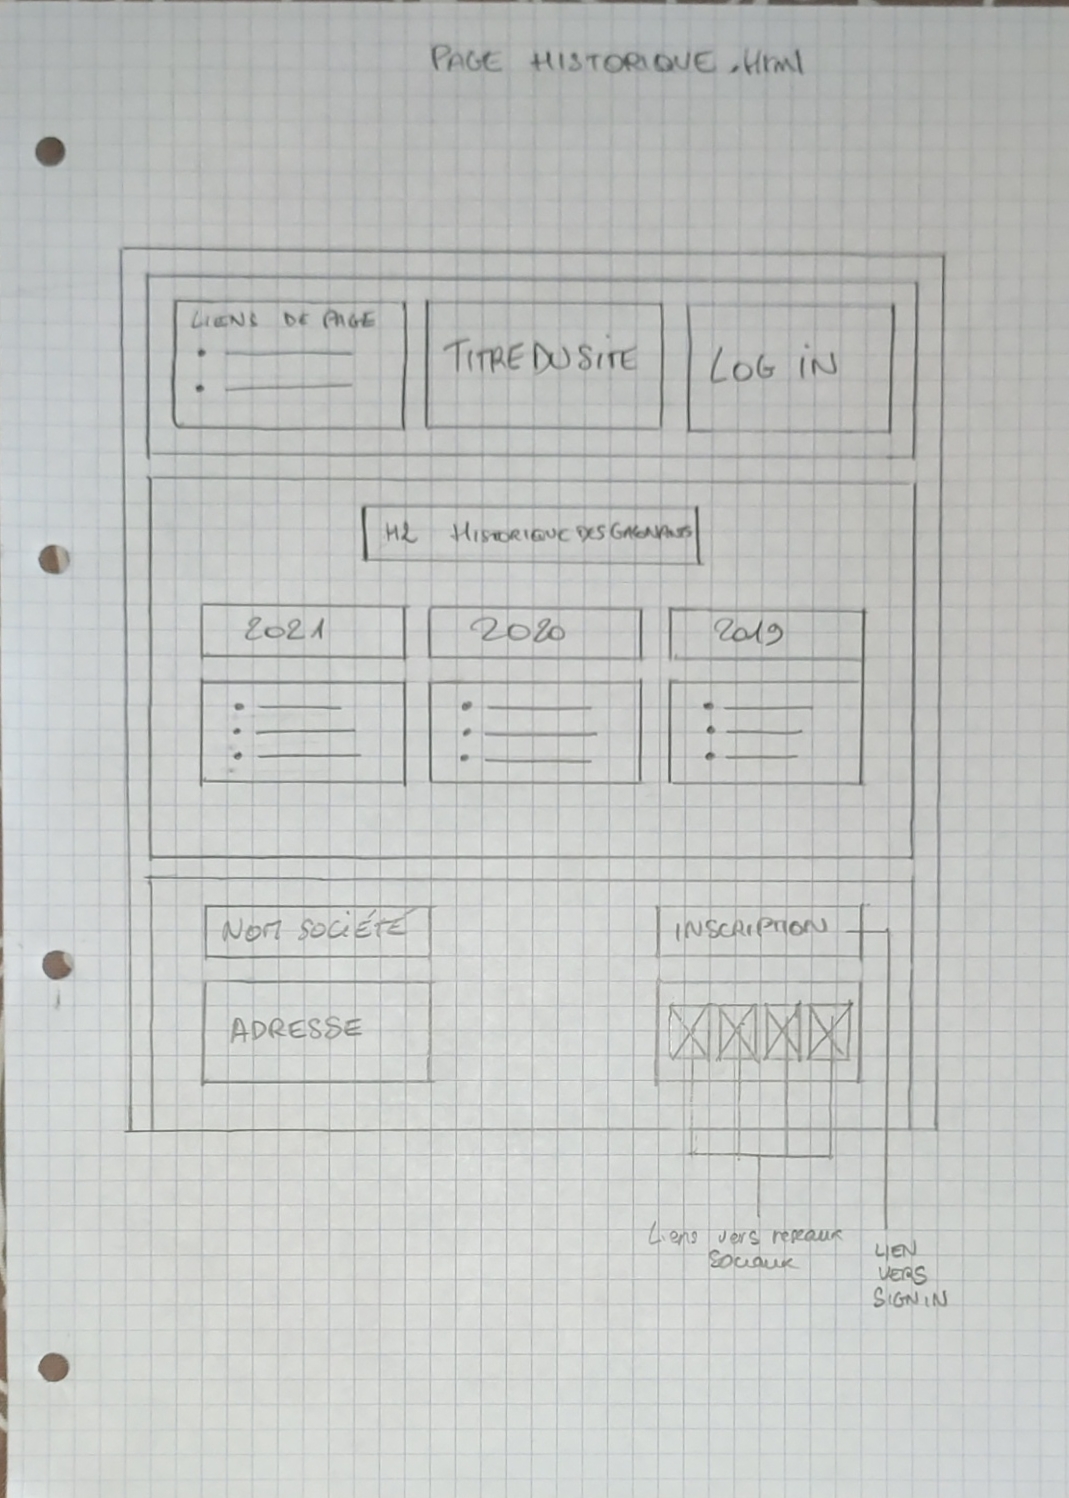 PAGE HISTORIQUE.Html
LIENS DE PAGE
TITRE DU SITE
LOG IN
H2 HISTORIQUE DES GAGNANTS
2021
2020
2019
NOM SOCIÉTÉ
INSCRIPTION
ADRESSE
Liens vers reseaux
sociaux
LIEN
VERS
SIGN IN